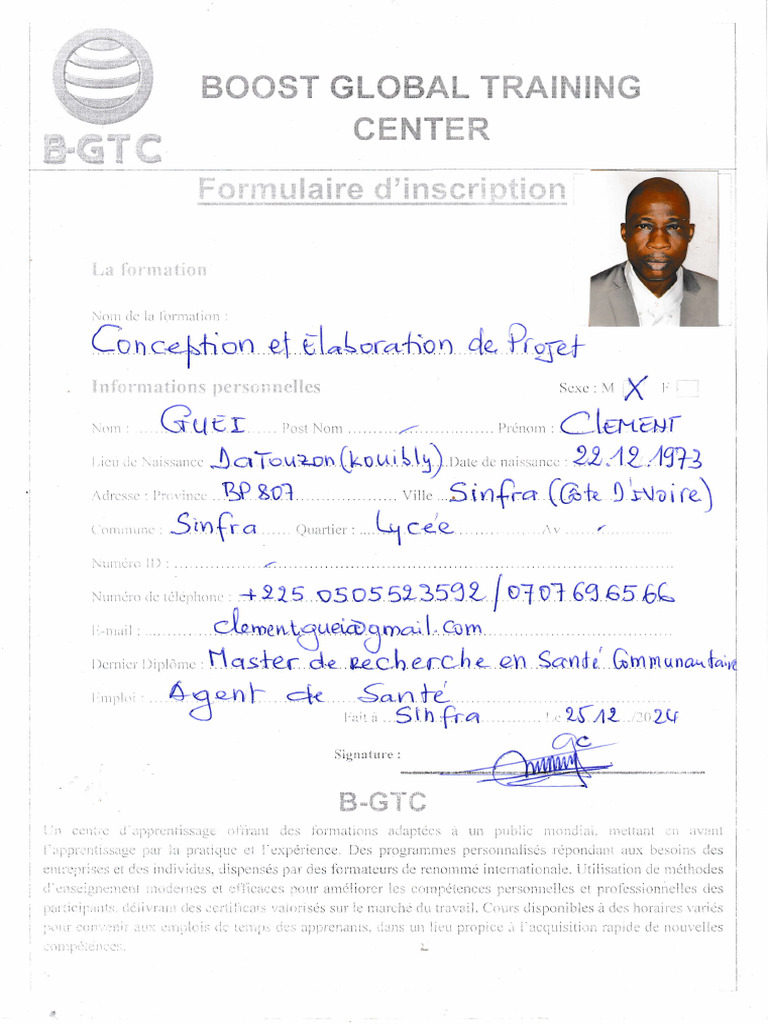 B-GTC
BOOST GLOBAL TRAINING
CENTER
Formulaire d'inscription
La formation
Nom de la formation :
Conception et Elaboration de Projet
Informations personnelles Sexe : M X F
Nom : GUEI Post Nom - Prénom : CLEMENT
Lieu de Naissance DaTouzon (kouibly) Date de naissance : 22.12.1973
Adresse : Province BP 807 Ville Sinfra (Côte D'Ivoire)
Commune : Sinfra Quartier : Lycée Av -
Numéro ID : -
Numéro de téléphone : +225 0505523592 / 0707696566
E-mail : clement.guei@gmail.com
Dernier Diplôme : Master de recherche en Santé Communautaire
Emploi : Agent de Santé
Fait à Sinfra Le 25 12 /2024
Signature : GC
B-GTC
Un centre d'apprentissage offrant des formations adaptées à un public mondial, mettant en avant
l'apprentissage par la pratique et l'expérience. Des programmes personnalisés répondant aux besoins des
entreprises et des individus, dispensés par des formateurs de renommé internationale. Utilisation de méthodes
d'enseignement modernes et efficaces pour améliorer les compétences personnelles et professionnelles des
participants, délivrant des certificats valorisés sur le marché du travail. Cours disponibles à des horaires variés
pour convenir aux emplois de temps des apprenants, dans un lieu propice à l'acquisition rapide de nouvelles
compétences.